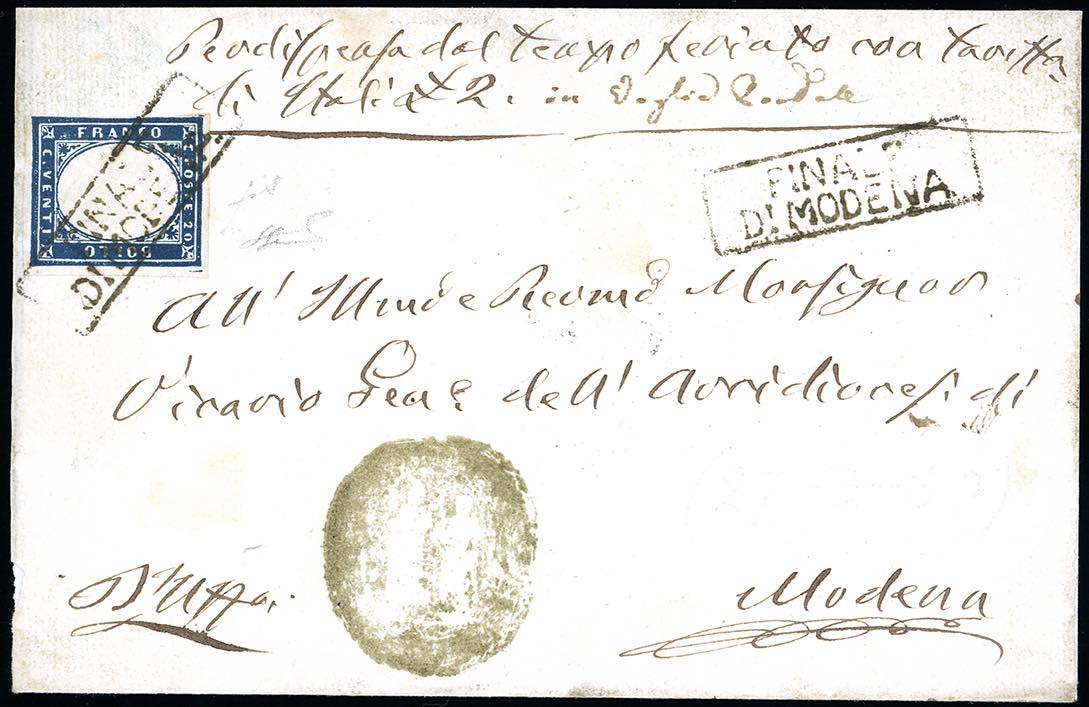 Per dispensa dal tempo feriato con tariffa
di Italia £ 2. in
FRANCO
C. VENTI
C. POSTE 20
BOLLO
FINALE
DI MODENA
FINALE
DI MODENA
All' Illmo e Revmo Monsignor
Vicario Gen.e dell' Arcidiocesi di
D'Uffo.
Modena